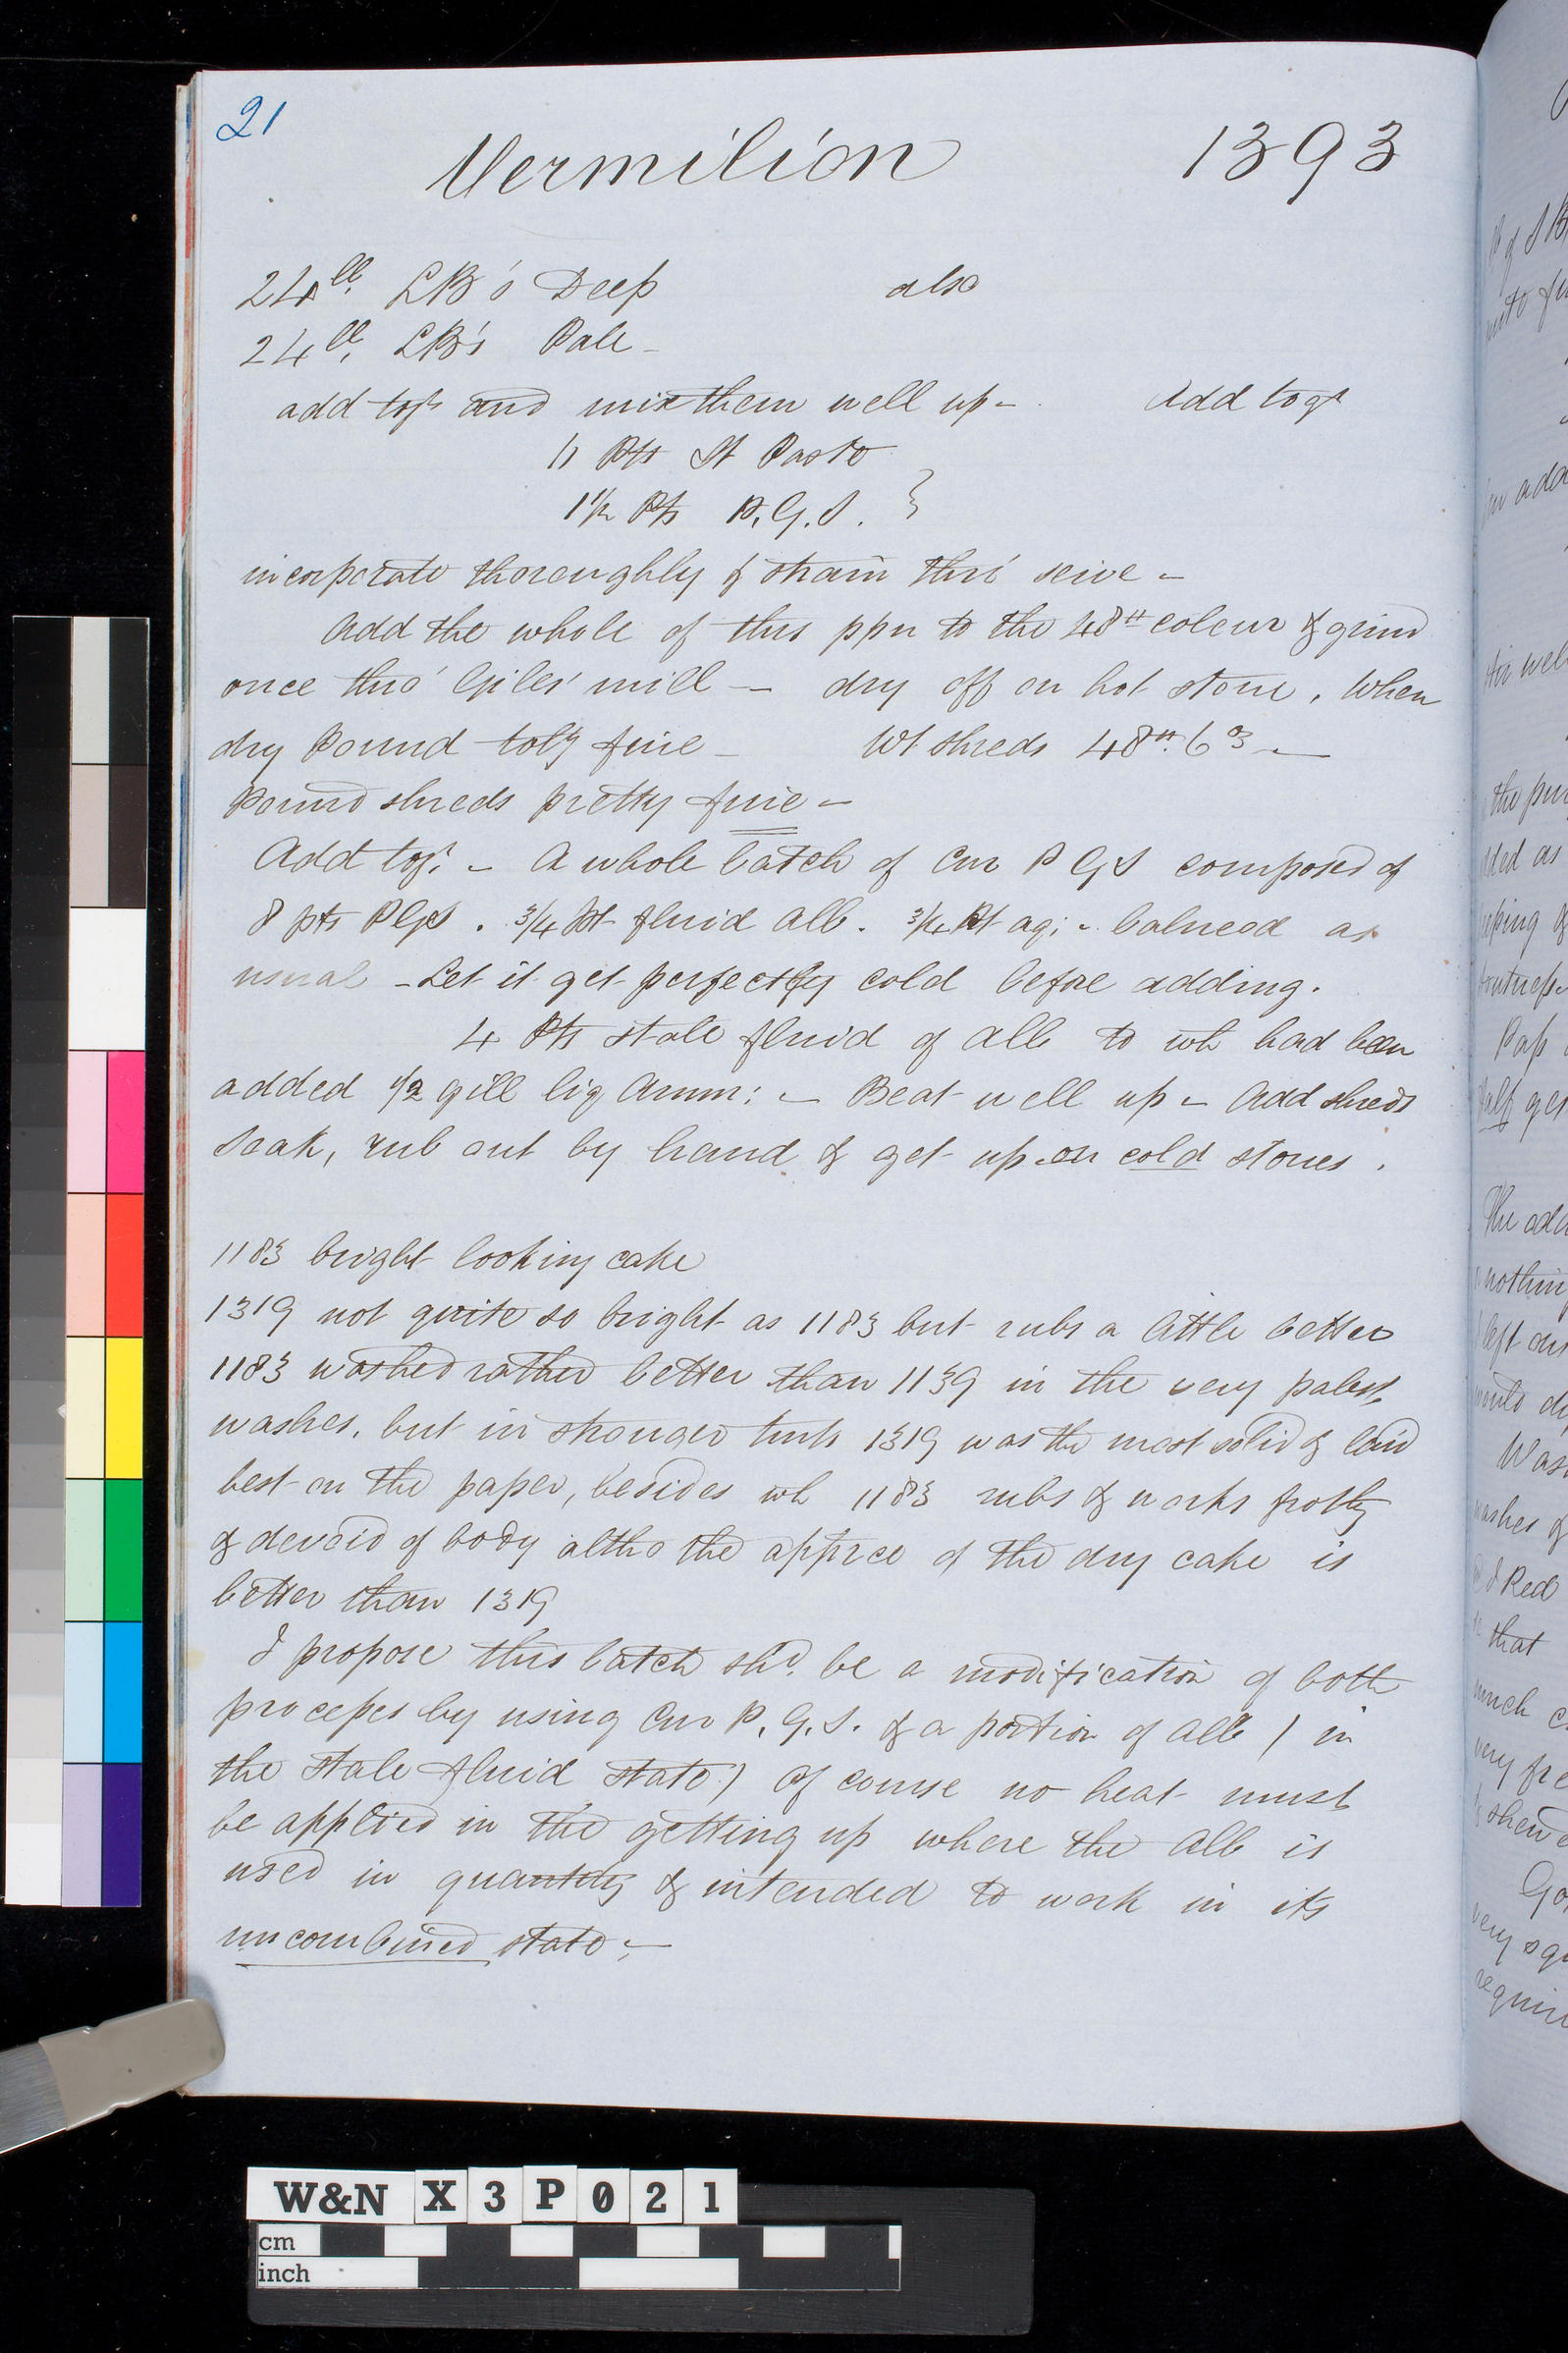 21
Vermilion 1393
24 lb. LB's Deep also
24 lb. LB's Pale -
add togr and mix them well up - Add togr
11 Pts St Paste
1 1/2 Pts P.G.S. }
incorporate thoroughly & strain thro' seive -
Add the whole of this ppn to the 48 lb colour & grind
once thro' Giles' mill - dry off on hot stone, When
dry Pound tolly fine - Wt shreds 48 lb. 6 oz -
Pound shreds pretty fine -
Add togr: - A whole batch of Cur P G S composed of
8 pts PGS . 3/4 Pt fluid alb. 3/4 Pt aq: - balneod as
usual - Let it get perfectly cold before adding.
4 Pts stale fluid of alb to wh had been
added 1/2 gill liq Amm: - Beat well up - Add shreds
soak, rub out by hand & get up on cold stones .
1183 bright looking cake
1319 not quite so bright as 1183 but rubs a little better
1183 washed rather better than 1139 in the very palest
washes, but in stronger tints 1319 was the most solid & laid
best on the paper, besides wh 1183 rubs & works frothy
& devoid of body altho the apprce of the dry cake is
better than 1319
I propose this batch shd. be a modification of both
processes by using Cur P.G.S. & a portion of alb ( in
the stale fluid state ) Of course no heat must
be applied in the getting up where the alb is
used in quantity & intended to work in its
uncombined state -
W&N X3P021
cm
inch